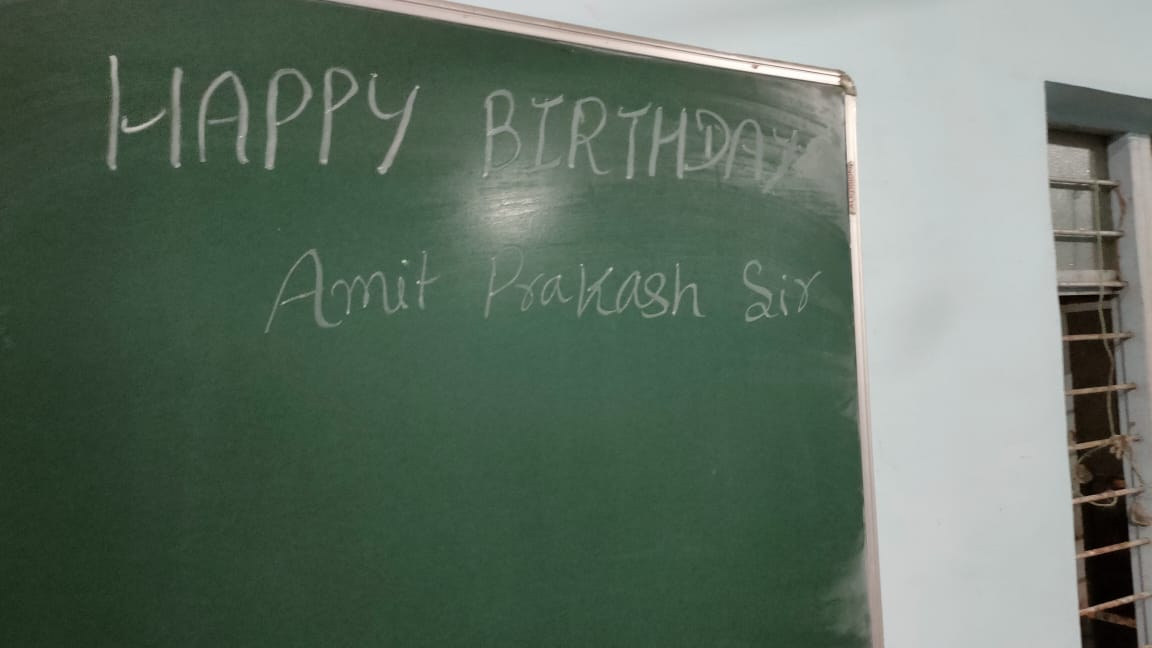 HAPPY BIRTHDAY
Amit Prakash Sir